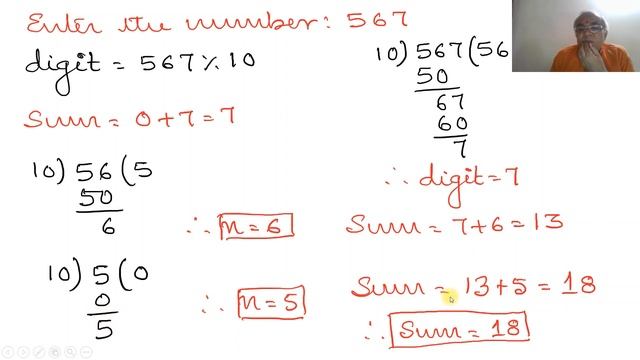 Enter the number: 567
digit = 567 % 10
10) 567 (56
50
67
60
7
Sum = 0+7 = 7
∴ digit = 7
10) 56 (5
50
6
∴ n = 6
Sum = 7+6 = 13
10) 5 (0
0
5
∴ n = 5
Sum = 13+5 = 18
∴ Sum = 18